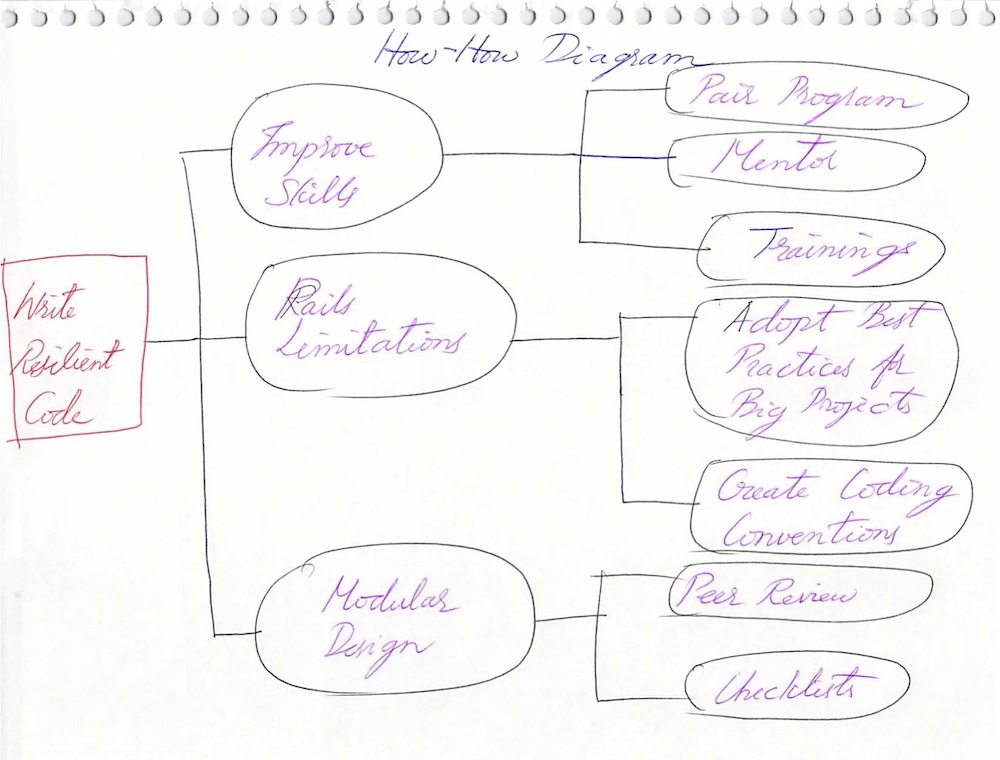 How-How Diagram
Pair Program
Improve
Skills
Mentor
Trainings
Write
Resilient
Code
Rails
Limitations
Adopt Best
Practices for
Big Projects
Create Coding
Conventions
Modular
Design
Peer Review
Checklists